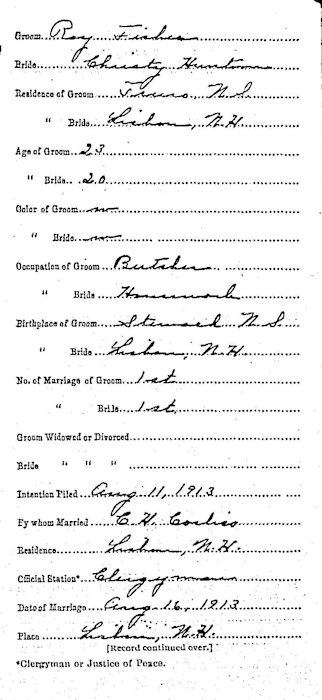 Groom... Roy Fisher
Bride... Christy Huntoon
Residence of Groom... Truro N. S.
" Bride... Lisbon, N.H.
Age of Groom... 23
" Bride... 20
Color of Groom... w
" Bride... w
Occupation of Groom... Butcher
" Bride... Housework
Birthplace of Groom... N. S.
" Bride... Lisbon, N.H.
No. of Marriage of Groom... 1st
" Bride... 1st
Groom Widowed or Divorced...
Bride " " " ...
Intention Filed... Aug 11, 1913
By whom Married... C. H. Corliss
Residence... Lisbon, N.H.
Official Station*... Clergyman
Date of Marriage... Aug 16, 1913
Place... Lisbon, N.H.
[Record continued over.]
*Clergyman or Justice of Peace.